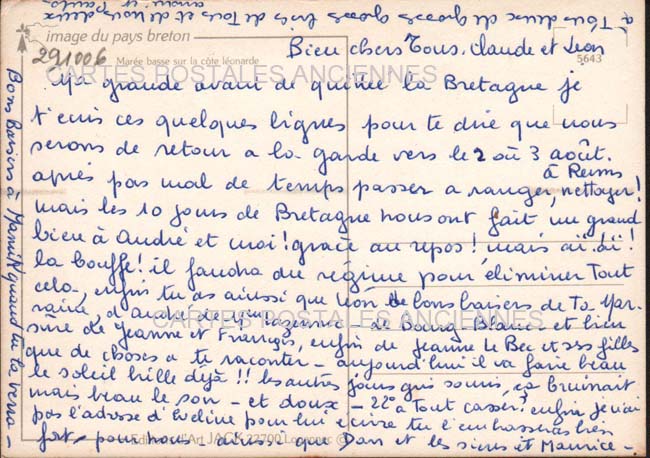 à Tous deux de grosses bises de Tous et de nous deux
image du pays breton
291006
Marée basse sur la côte léonarde
5643
CARTES POSTALES ANCIENNES
Bien chers Tous. Claude et Léon
Ma grande avant de quitter la Bretagne je
t'ecris ces quelques lignes pour te dire que nous
serons de retour a la garde vers le 2 où 3 août.
après pas mal de temps passer a ranger, nettoyer!
à Reims
mais les 10 jours de Bretagne nous ont fait un grand
bien à André et moi! grâce au repos! mais aï. aï!
la bouffe! il faudra du régime pour éliminer Tout
cela, enfin tu as aiussi que Léon de bons baisers de
d'André de
CARTES POSTALES ANCIENNES
de Bourg-Blanc et bien
sûre de Jeanne et François, enfin de Jeanne Le Bec et ses filles
que de choses a te raconter - aujourd'hui il va faire beau
le soleil brille déjà!! les autres jours gris souris, ça bruinait
mais beau le soir - et doux - 22° a Tout casser! enfin je n'ai
pas l'adresse d'Eveline pour lui écrire tu l'embrasseras bien
fort - pour nous - aiussi que Dan et les siens et Maurice -
Editions d'Art JACK 22700
Bons Baisers à Mamie quand tu la verra -